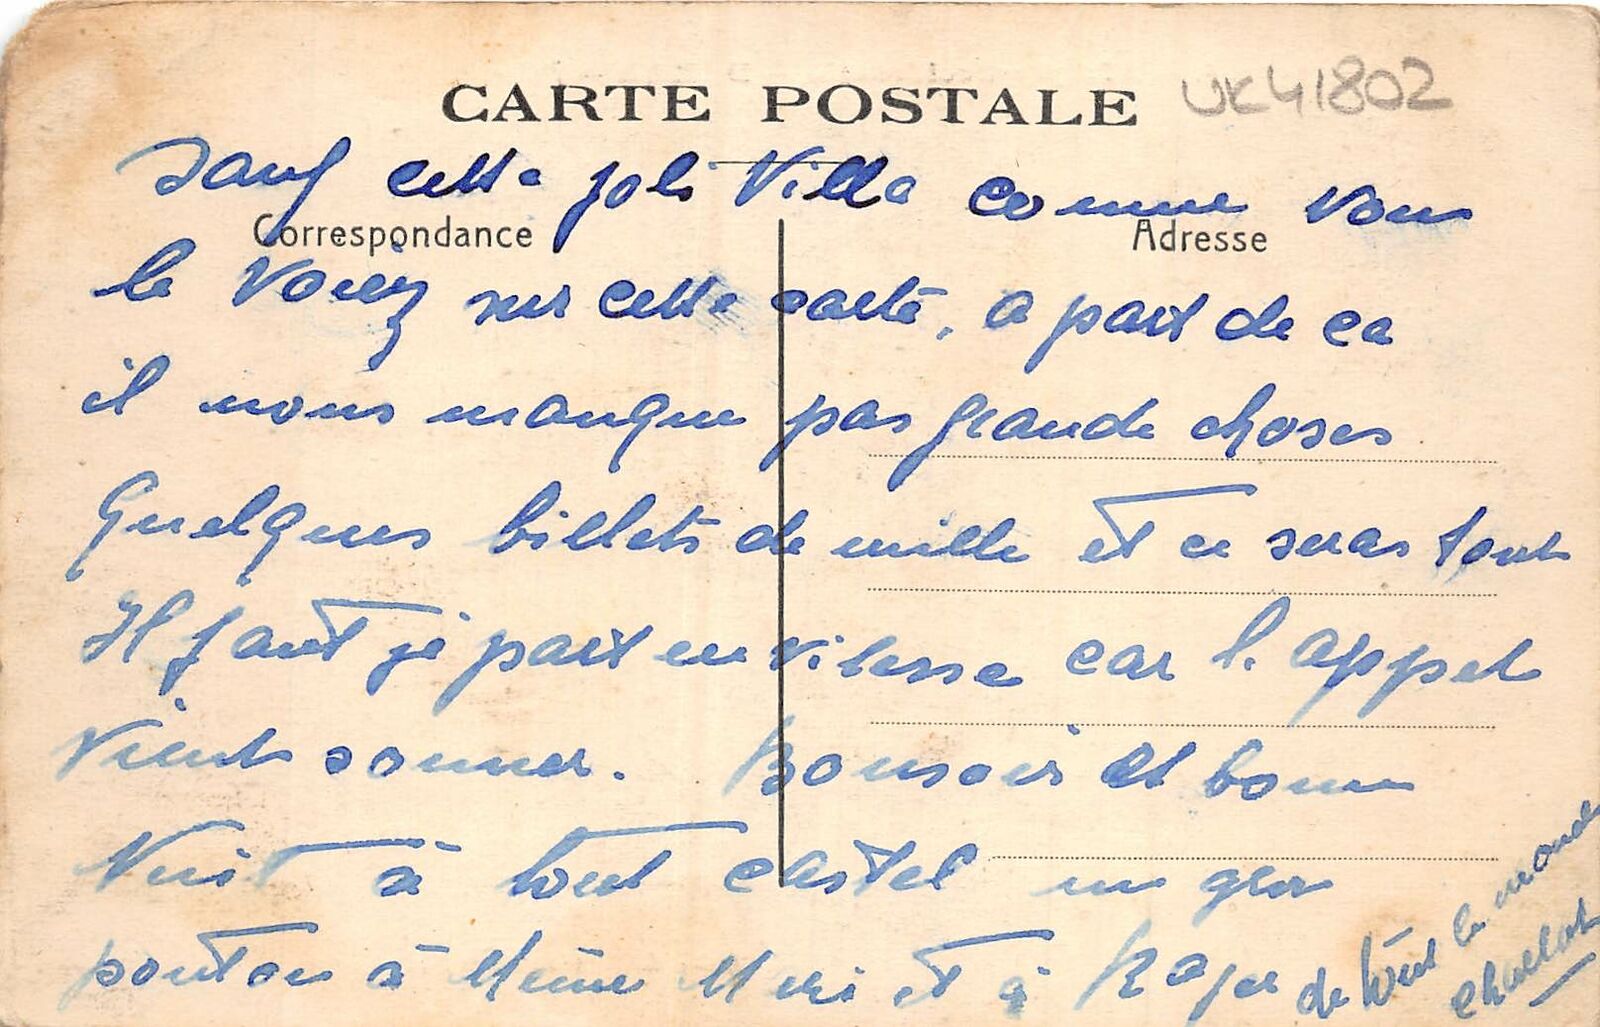 CARTE POSTALE
UK41802
sauf cette joli Villa comme vous
Correspondance
Adresse
le voiez sur cette carte, a part de ca
il nous manque pas grande choses
Quelques billets de mille et ce seras tout
Il faut je part en vitesse car l'appel
vient sonner. Bonsoir et bonne
Nuit à tout castel un gros
pouton à Même et à Roger
de tout le monde